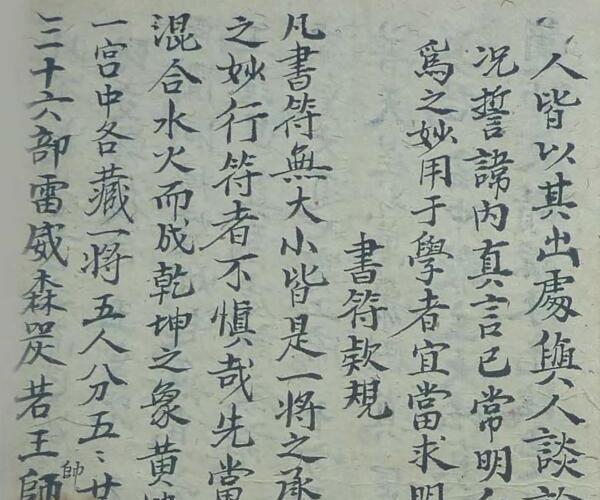 人皆以其出處與人談
况誓諱內真言已常明
爲之妙用于學者宜當求明
書符欵規
凡書符無大小皆是一將之承
之妙行符者不慎哉先當
混合水火而成乾坤之象黃
一宮中各藏一將五人分五〻廿
三十六部雷威森罡若王師
帥